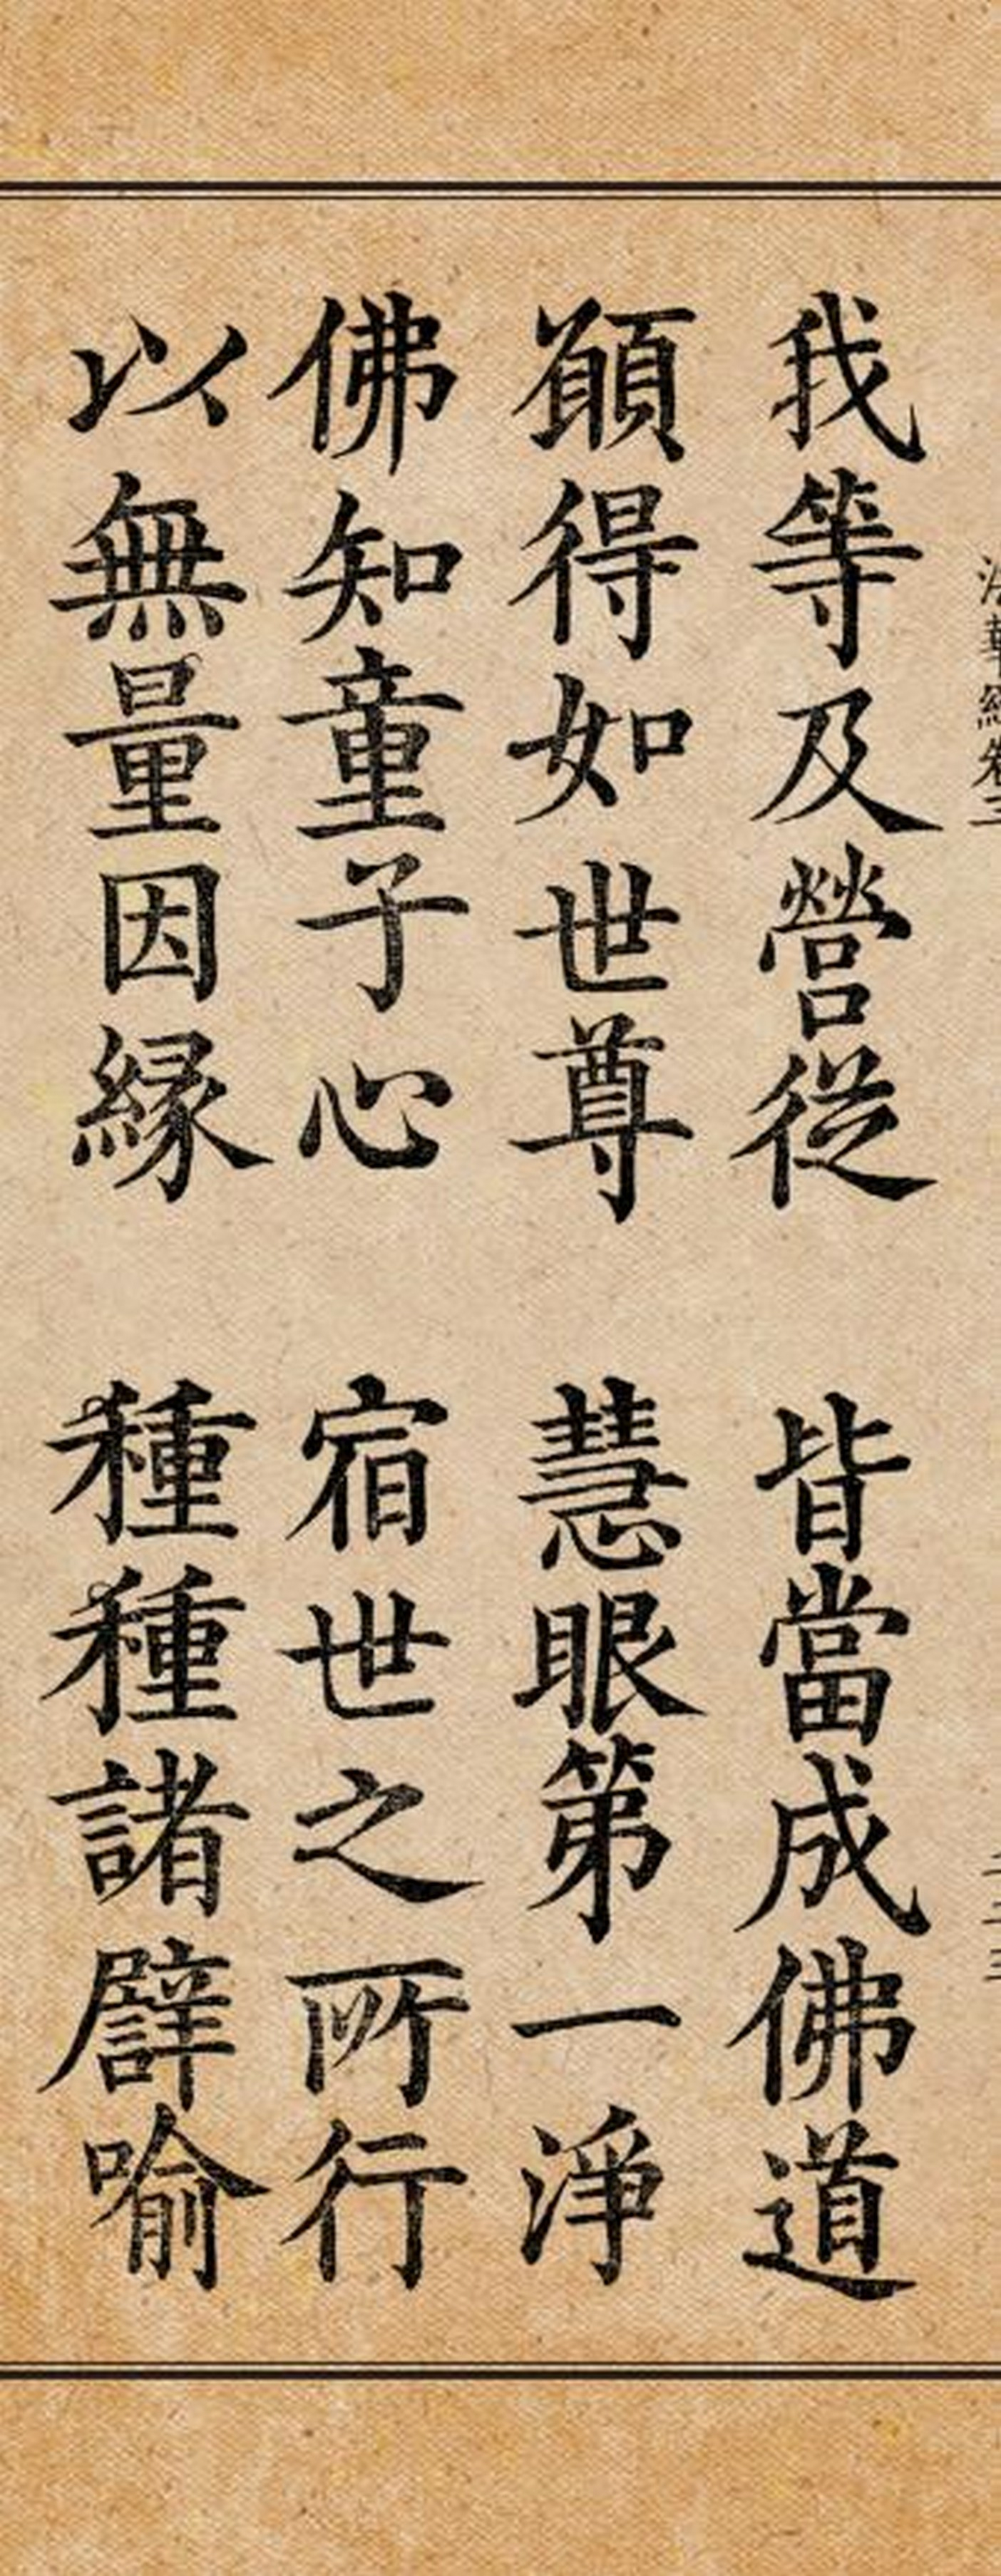 我等及營従　皆當成佛道
願得如世尊　慧眼第一淨
佛知童子心　宿世之所行
以無量因縁　種種諸譬喻